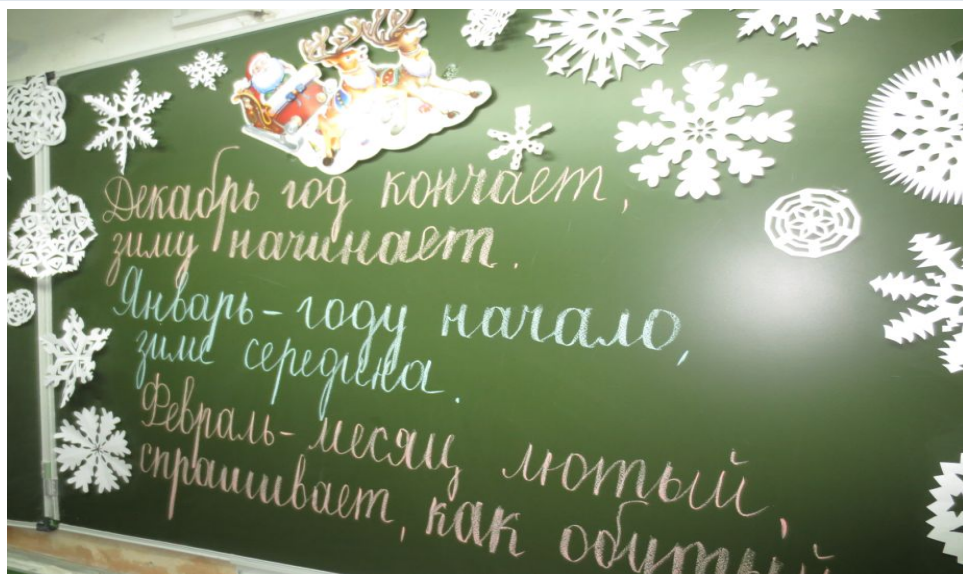 Декабрь год кончает,
зиму начинает.
Январь - году начало,
зиме середина.
Февраль - месяц лютый,
спрашивает, как обутый